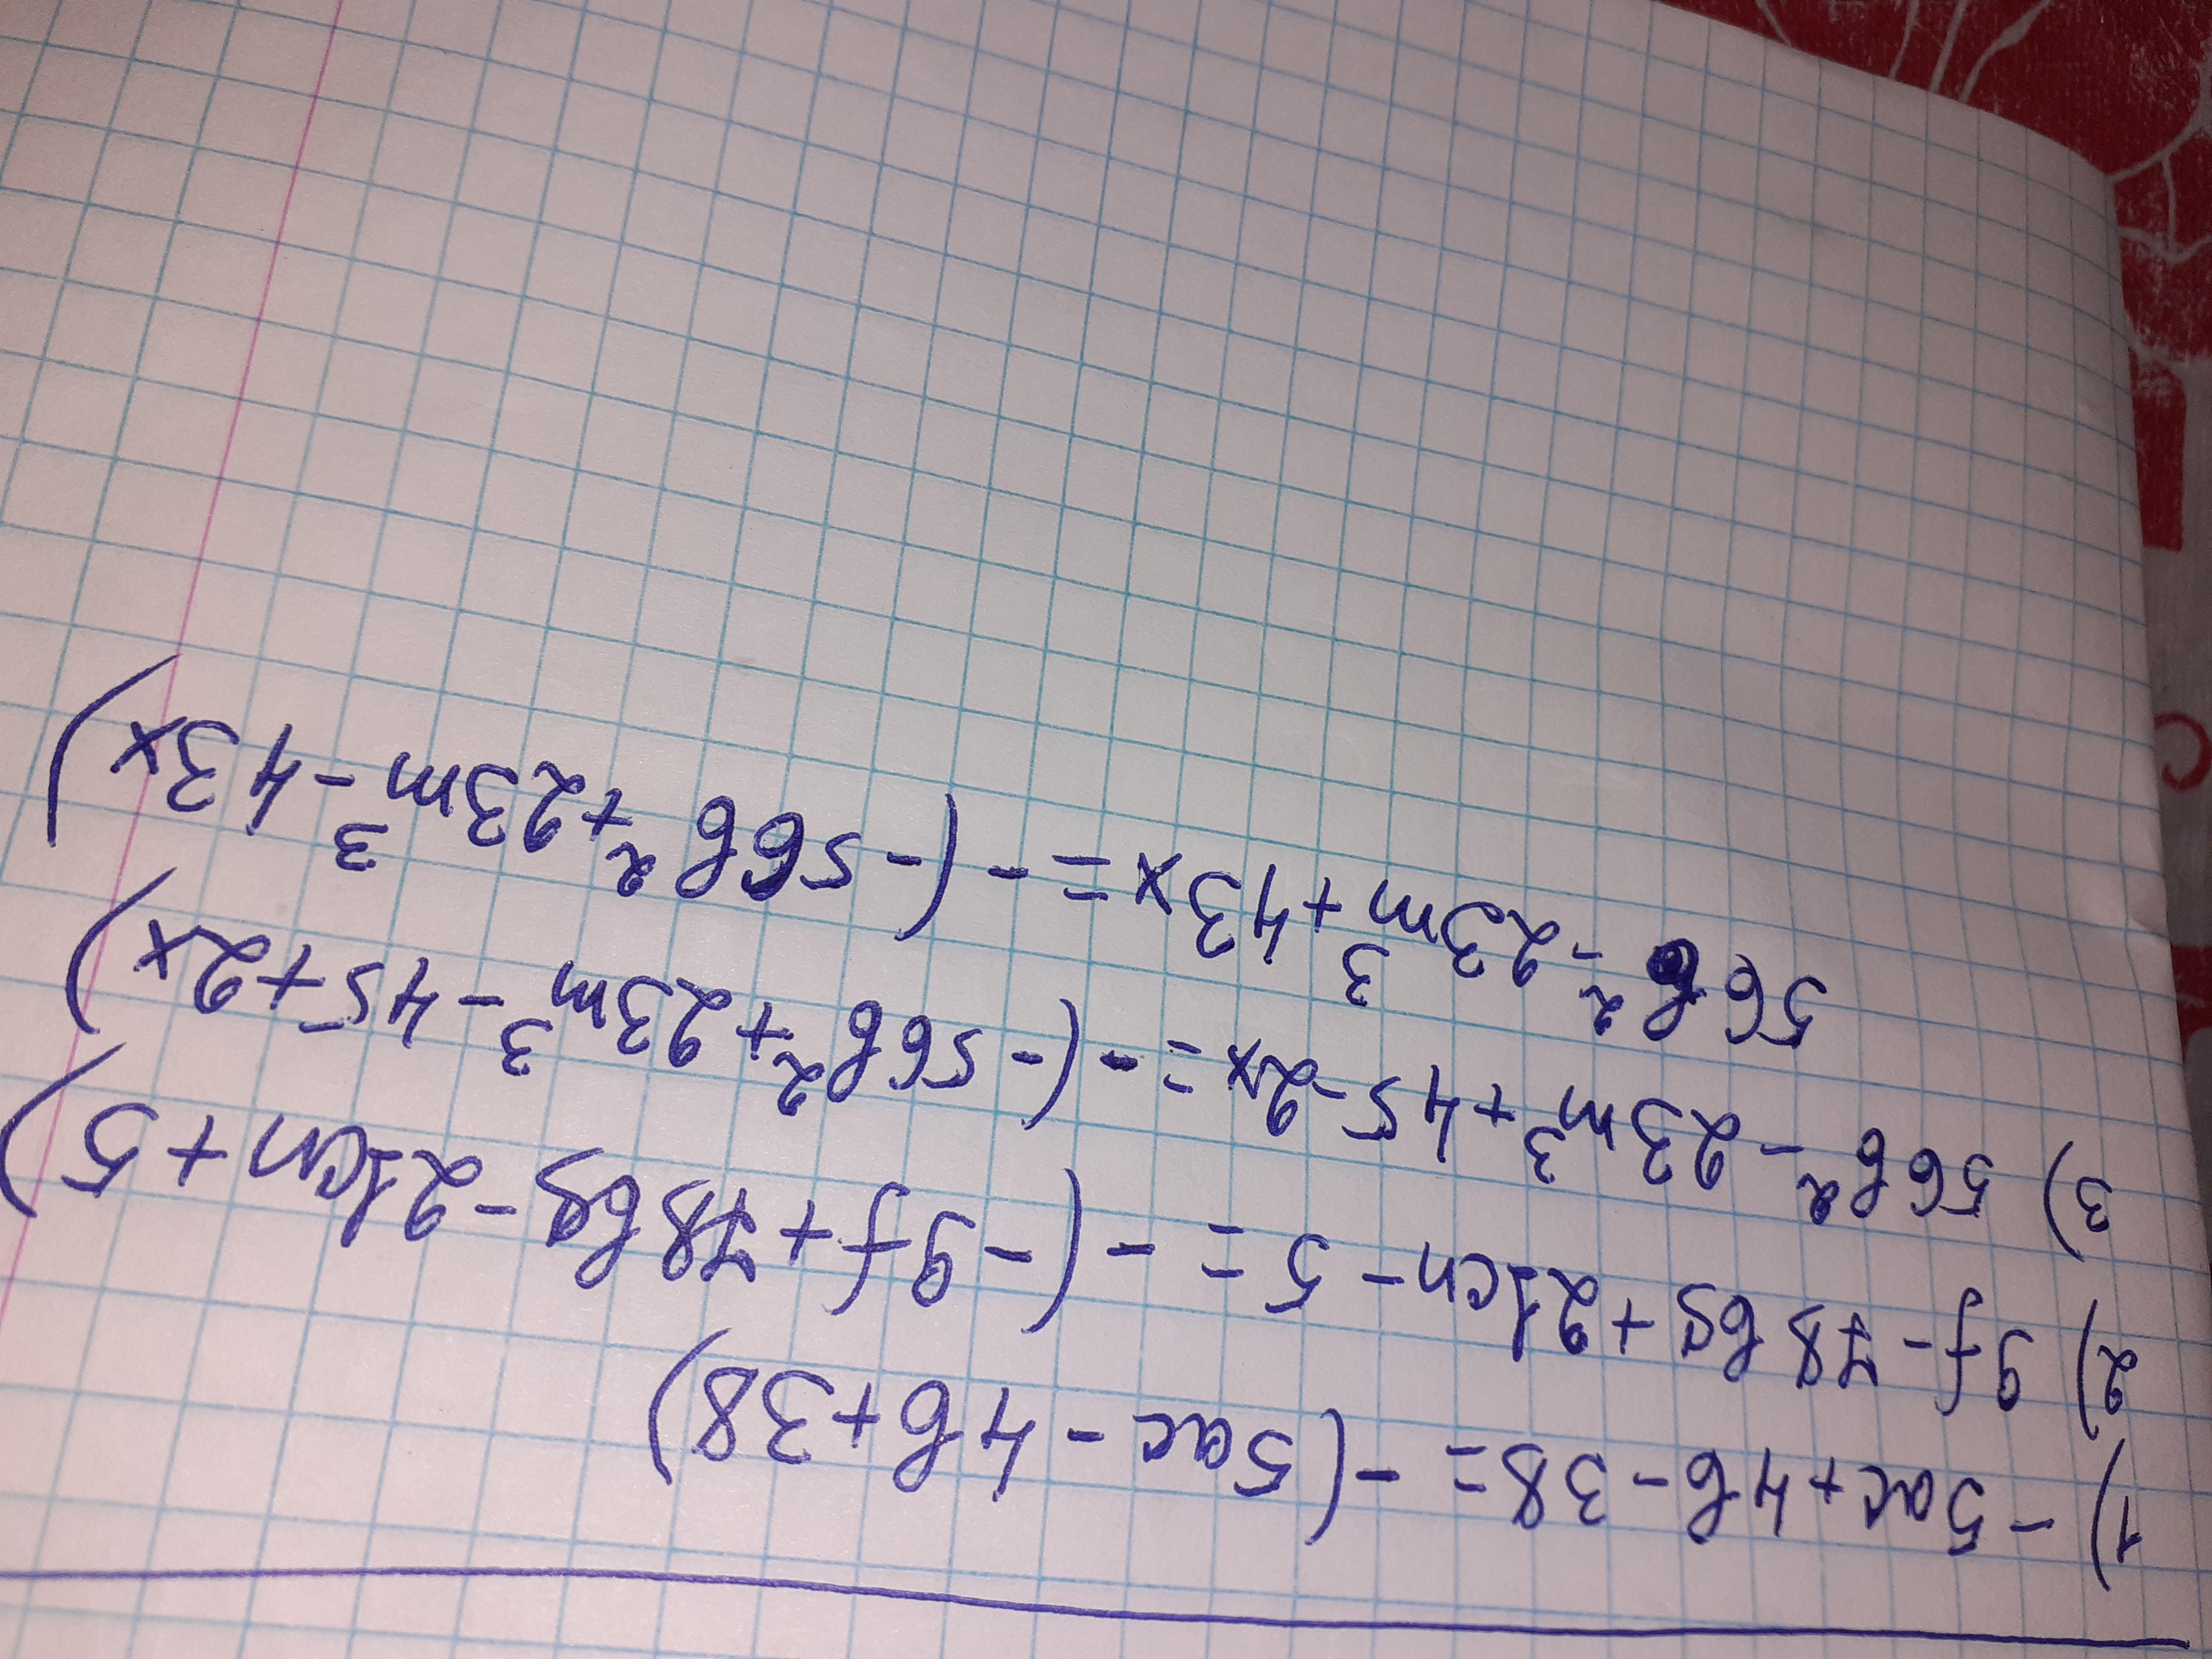 1) -5ac+4b-38= -(5ac-4b+38)
2) 9f-78bg+21cn-5= -(-9f+78bg-21cn+5)
3) 56b²-23m³+45-2x= -(-56b²+23m³-45+2x)
56b²-23m³+43x= -(-56b²+23m³-43x)